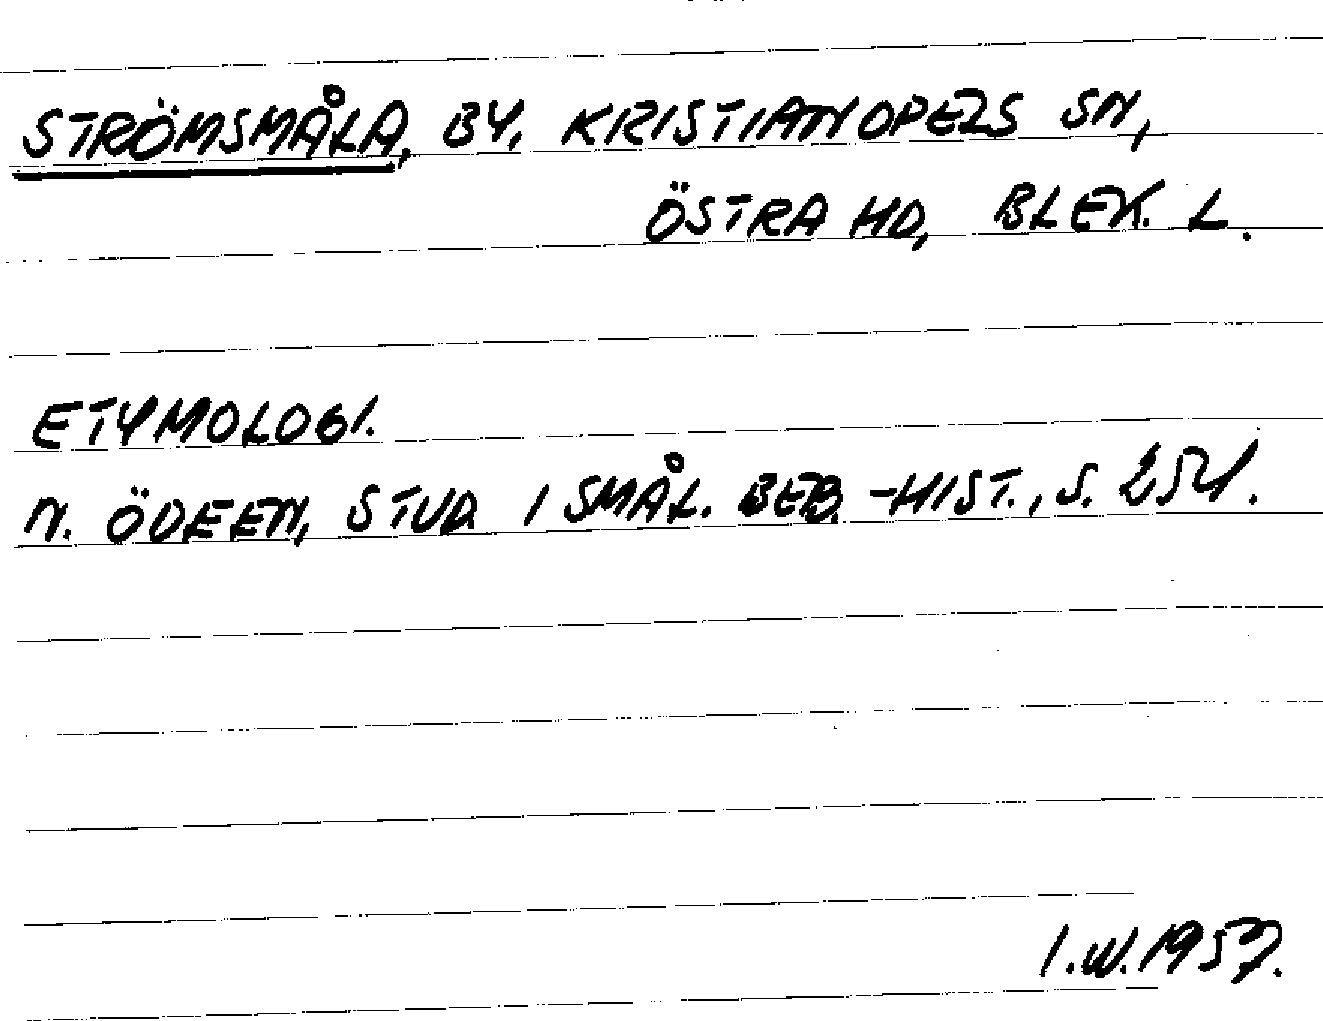 STRÖMSMÅLA, BY, KRISTIANOPELS SN,
ÖSTRA HD, BLEK. L.
ETYMOLOGI.
N. ÖDEEN, STUD. I SMÅL. BEB.-HIST., S. 254.
I.W.1957.